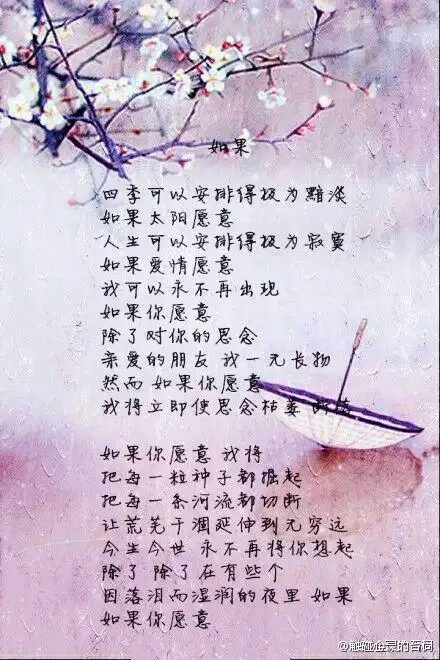 如果
四季可以安排得极为黯淡
如果太阳愿意
人生可以安排得极为寂寞
如果爱情愿意
我可以永不再出现
如果你愿意
除了对你的思念
亲爱的朋友 我一无长物
然而 如果你愿意
我将立即使思念枯萎 断落
如果你愿意 我将
把每一粒种子都掘起
把每一条河流都切断
让荒芜干涸延伸到无穷远
今生今世 永不再将你想起
除了 除了在有些个
因落泪而湿润的夜里 如果
如果你愿意